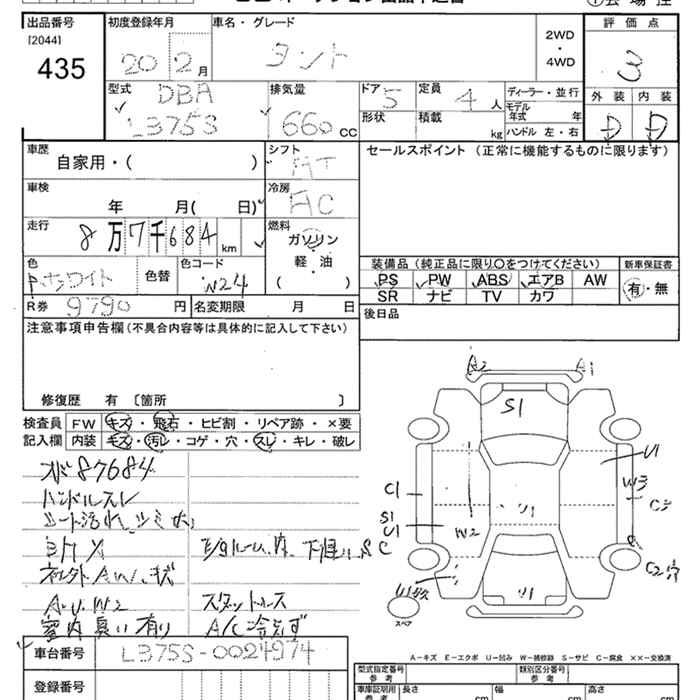 出品番号
[2044]
435
初度登録年月
20 2月
車名・グレード
タント
2WD
・
4WD
評価点
3
外装 内装
D D
型式
DBA
L375S
排気量
660 cc
ドア 5
形状
定員 4 人
積載 kg
ディーラー・並行
モデル年式 年
ハンドル 左・右
車歴
自家用・( )
シフト
AT
車検
年 月( 日)
冷房
AC
走行
8万7千684 km
燃料
ガソリン
軽・油
( )
セールスポイント (正常に機能するものに限ります)
色
P.ホワイト
色替
色コード
W24
R券 9790 円
名変期限 月 日
装備品(純正品に限り○をつけてください)
PS PW ABS エアB AW
SR ナビ TV カワ
新車保証書
有・無
後日品
注意事項申告欄(不具合内容等は具体的に記入して下さい)
修復歴 有 〔箇所 〕
検査員記入欄
FW キズ・飛石・ヒビ割・リペア跡・×要
内装 キズ・汚レ・コゲ・穴・スレ・キレ・破レ
87684
ハンドルスレ
シート汚れ
A.U.W2
スタットレス
室内臭い有り
A/C冷えず
A2 A1
S1
U1
C1
W3
S1
U1
W2
U1
C2穴
U1
スペア
A-キズ E-エクボ U-凹み W-補修跡 S-サビ C-腐食 ××-交換済
車台番号 L375S-0024974
登録番号
型式指定番号 参考
類別区分番号 参考
車庫証明用 参考
長さ cm
幅 cm
高さ cm